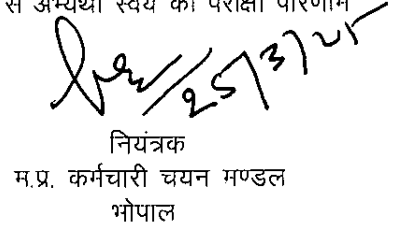 से अभ्यर्थी स्वयं का परीक्षा परिणाम
25/3/25
नियंत्रक
म.प्र. कर्मचारी चयन मण्डल
भोपाल